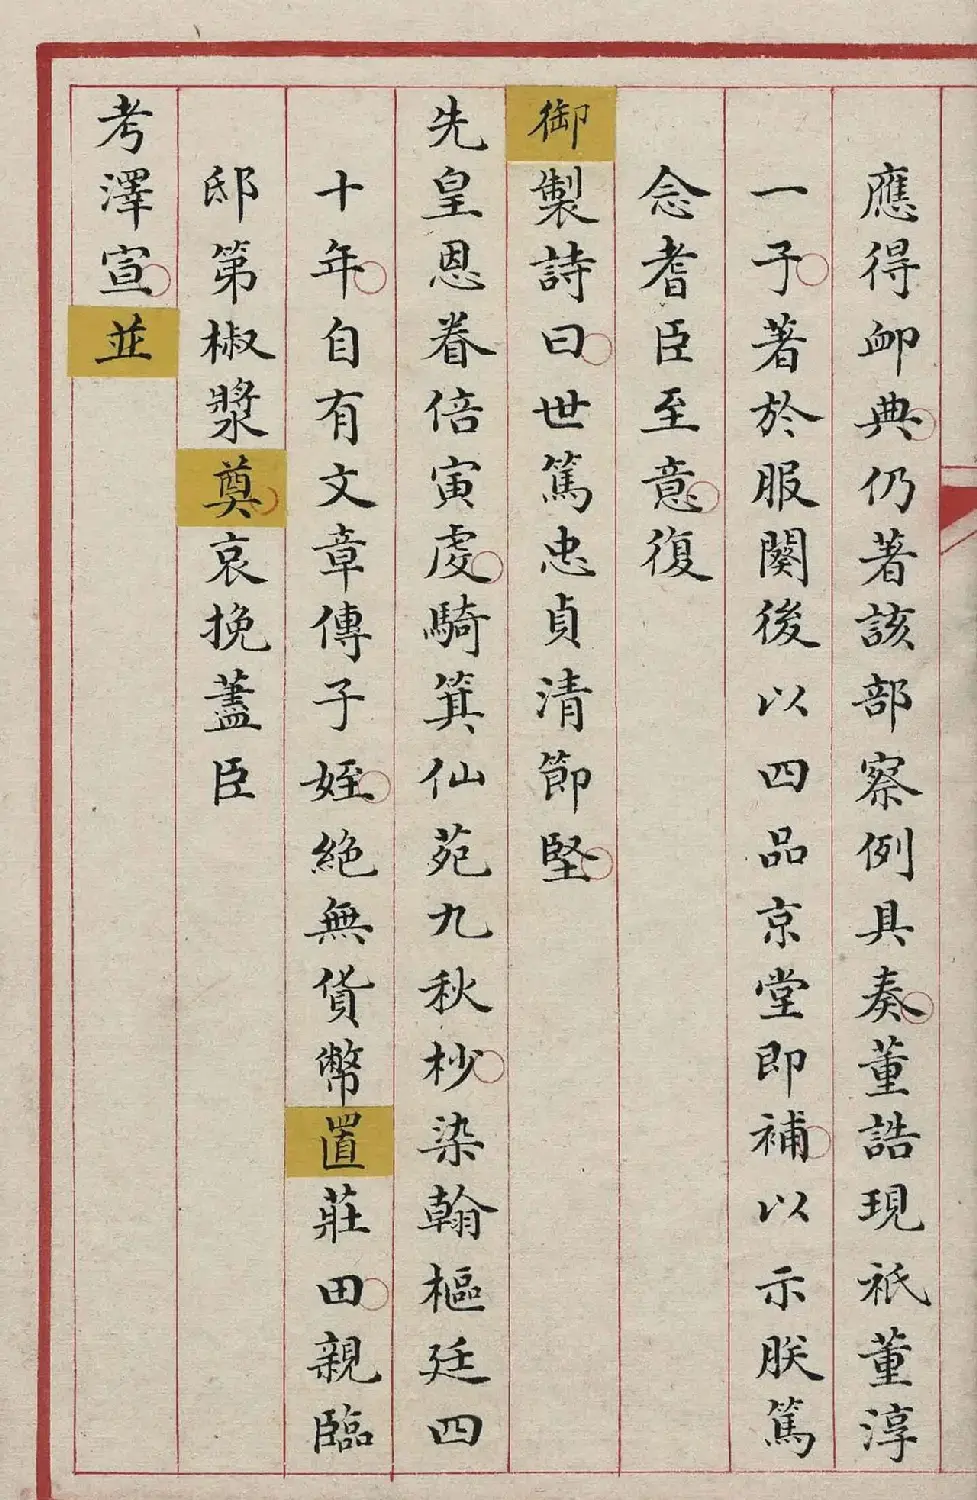 應得卹典仍著該部察例具奏董誥現祇董淳
一子著於服闋後以四品京堂即補以示朕篤
念耆臣至意復
御製詩曰世篤忠貞清節堅
先皇恩眷倍寅虔騎箕仙苑九秋杪染翰樞廷四
十年自有文章傳子姪絶無貨幣置莊田親臨
邸第椒漿奠哀挽藎臣
考澤宣並